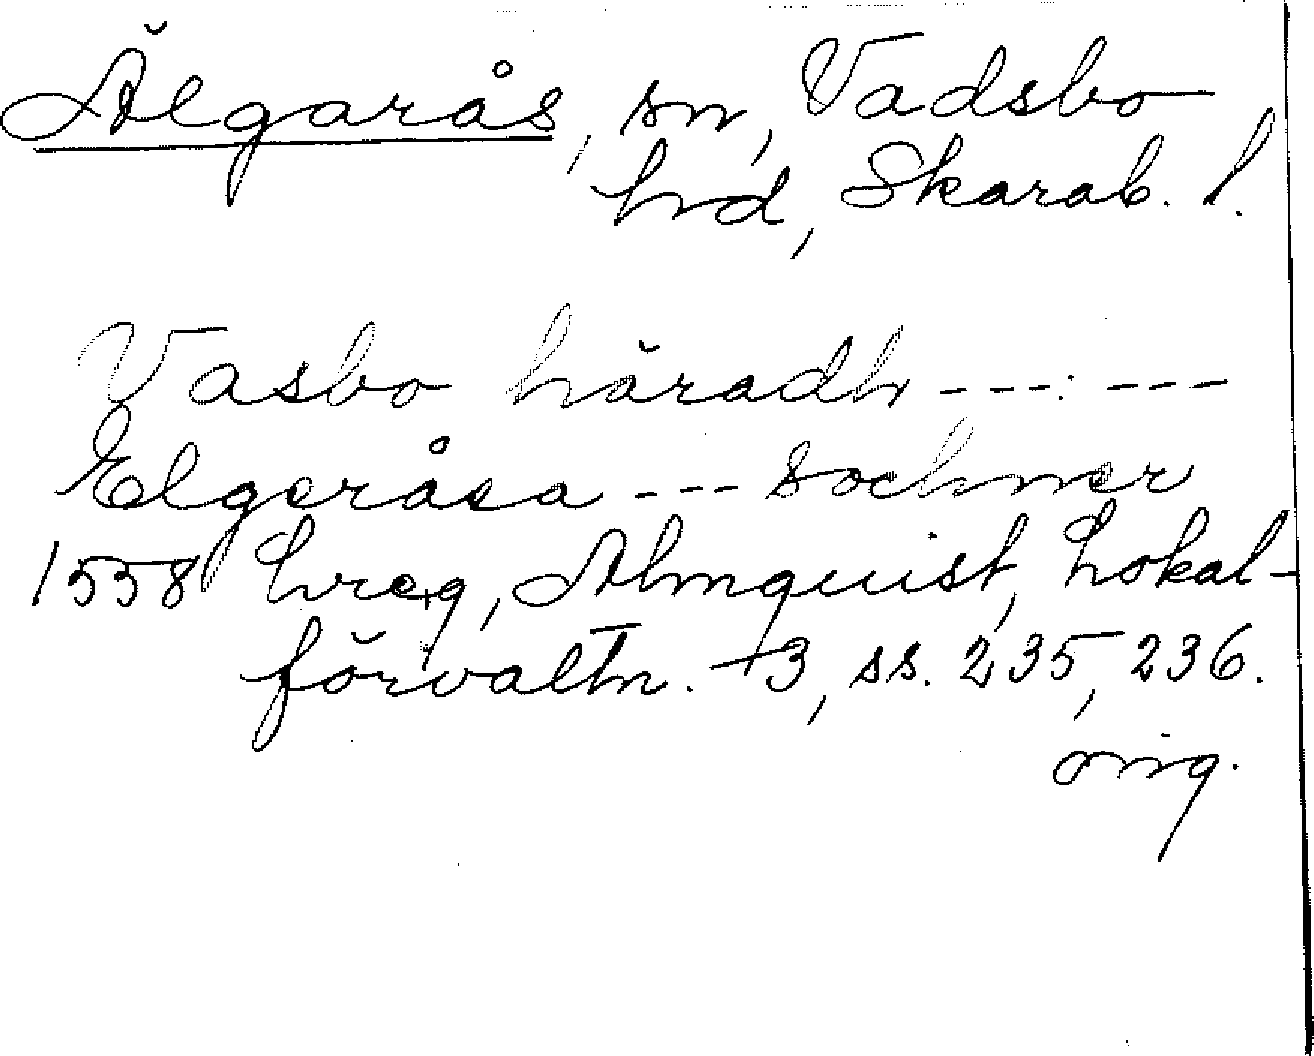 Älgarås, sn, Vadsbo
hd, Skarab. l.
Vasbo häradh --- ---
Elgeråsa --- sochner
1558 hreg, Almquist, Lokal-
förvaltn. 3, ss. 235, 236.
orig.